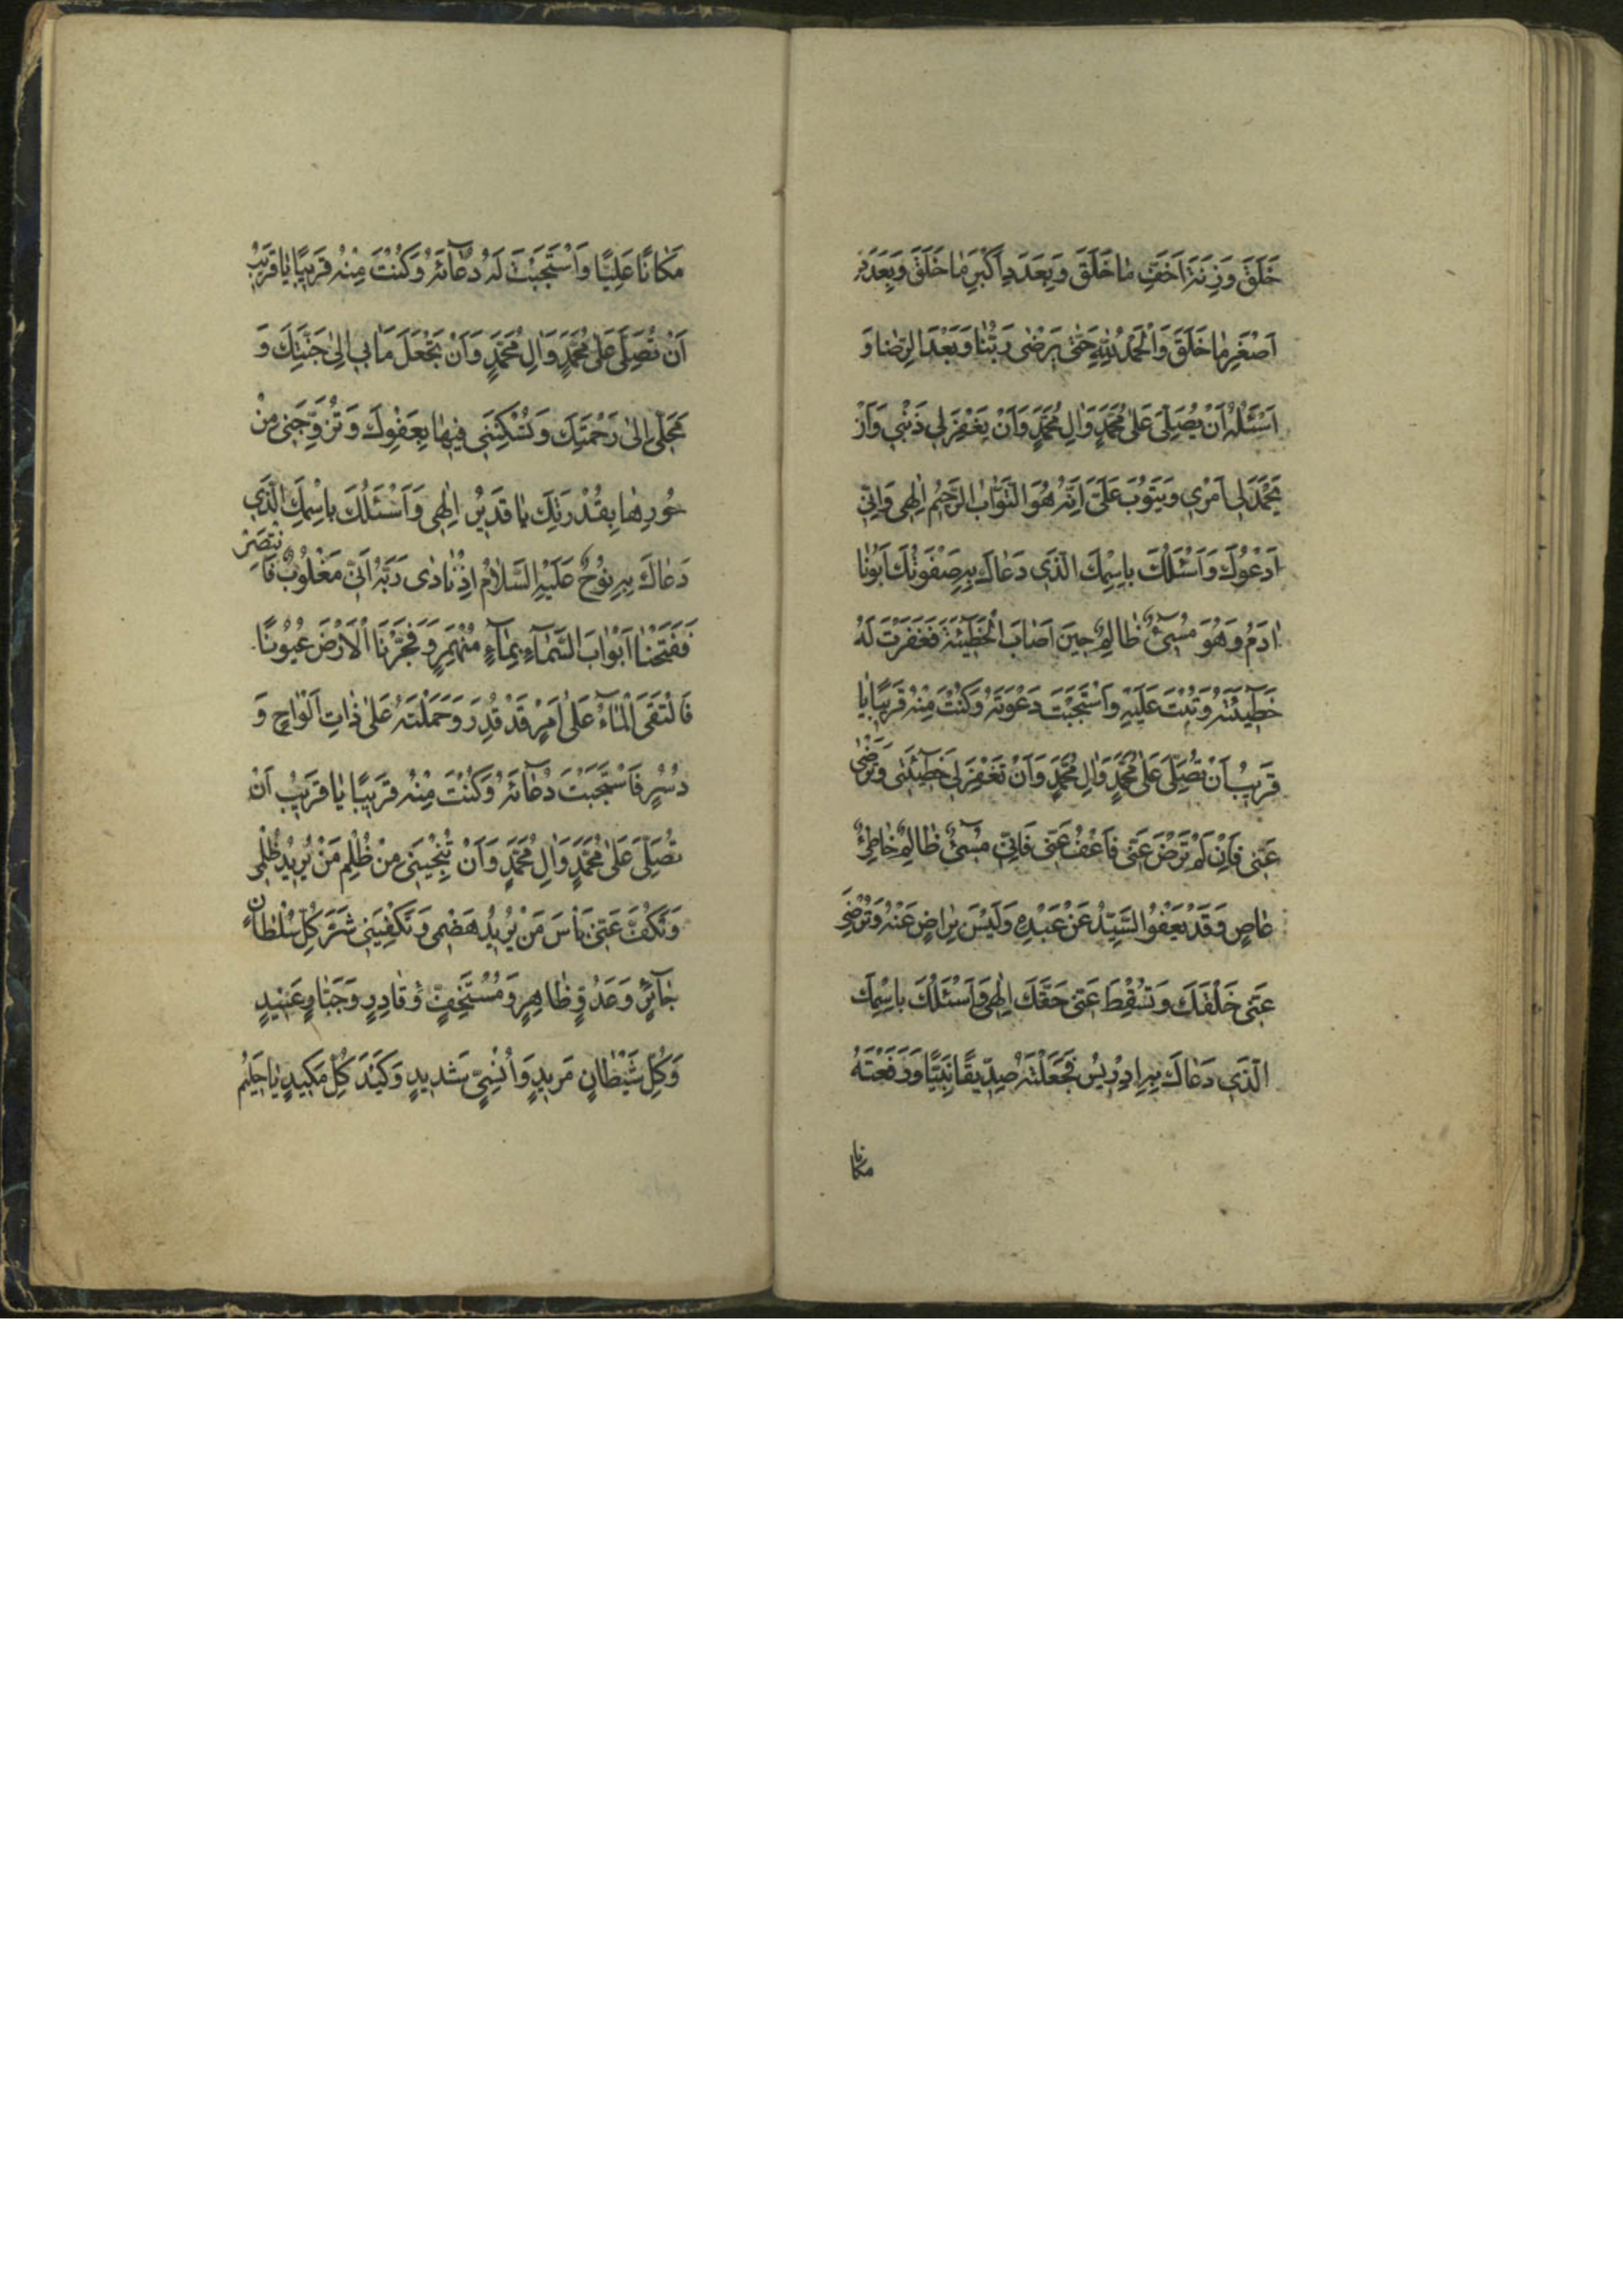 خَلَقَ وَزِنَةَ اَخَفِّ مٰا خَلَقَ وَبِعَدَدِ اَكْبَرِ مٰا خَلَقَ وَبِعَدَدِ
اَصْغَرِ مٰا خَلَقَ وَالْحَمْدُ لِلّٰهِ حَتّٰى يَرْضٰى رَبُّنٰا وَبَعْدَ الرِّضٰا وَ
اَسْئَلُهُ اَنْ يُصَلِّىَ عَلىٰ مُحَمَّدٍ وَاٰلِ مُحَمَّدٍ وَاَنْ يَغْفِرَ لي ذَنْبي وَاَنْ
يَحْمَدَ لي اَمْري وَيَتُوبَ عَلَىَّ اِنَّهُ هُوَ التَّوّٰابُ الرَّحيمُ اِلٰهى وَاِنّى
اَدْعُوكَ وَاَسْئَلُكَ بِاسْمِكَ الَّذي دَعٰاكَ بِهِ صَفْوَتُكَ اَبُونٰا
اٰدَمُ وَهُوَ مُسيٓئٌ ظٰالِمٌ حينَ اَصٰابَ الْخَطيٓئَةَ فَغَفَرْتَ لَهُ
خَطيٓئَتَهُ وَتُبْتَ عَلَيْهِ وَاسْتَجَبْتَ دَعْوَتَهُ وَكُنْتَ مِنْهُ قَريبًا يٰا
قَريبُ اَنْ تُصَلِّىَ عَلىٰ مُحَمَّدٍ وَاٰلِ مُحَمَّدٍ وَاَنْ تَغْفِرَ لي خَطيٓئَتى وَتَرْضٰى
عَنّى فَاِنْ لَمْ تَرْضَ عَنّى فَاعْفُ عَنّى فَاِنّى مُسيٓئٌ ظٰالِمٌ خٰاطِئٌ
عٰاصٍ وَقَدْ يَعْفُو السَّيِّدُ عَنْ عَبْدِهِ وَلَيْسَ بِرٰاضٍ عَنْهُ وَتُرْضِىَ
عَنّى خَلْقَكَ وَتُسْقِطَ عَنّى حَقَّكَ اِلٰهى وَاَسْئَلُكَ بِاسْمِكَ
الَّذي دَعٰاكَ بِهِ اِدْريسُ فَجَعَلْتَهُ صِدّيقًا نَبِيًّا وَرَفَعْتَهُ
مكانا
مَكٰانًا عَلِيًّا وَاسْتَجَبْتَ لَهُ دُعٰآئَهُ وَكُنْتَ مِنْهُ قَريبًا يٰا قَريبُ
اَنْ تُصَلِّىَ عَلىٰ مُحَمَّدٍ وَاٰلِ مُحَمَّدٍ وَاَنْ تَجْعَلَ مَاٰبي اِلىٰ جَنَّتِكَ وَ
مَحَلّى اِلىٰ رَحْمَتِكَ وَتُسْكِنَنى فيهٰا بِعَفْوِكَ وَتُزَوِّجَنى مِنْ
حُورِهٰا بِقُدْرَتِكَ يٰا قَديرُ اِلٰهى وَاَسْئَلُكَ بِاسْمِكَ الَّذي
دَعٰاكَ بِهِ نُوحٌ عَلَيْهِ السَّلاٰمُ اِذْ نٰادٰى رَبَّهُ اَنّى مَغْلُوبٌ فَانْتَصِرْ
فَفَتَحْنٰا اَبْوٰابَ السَّمٰآءِ بِمٰآءٍ مُنْهَمِرٍ وَفَجَّرْنَا الْاَرْضَ عُيُونًا
فَالْتَقَى الْمٰآءُ عَلىٰ اَمْرٍ قَدْ قُدِرَ وَحَمَلْتَهُ عَلىٰ ذٰاتِ اَلْوٰاحٍ وَ
دُسُرٍ فَاسْتَجَبْتَ دُعٰآئَهُ وَكُنْتَ مِنْهُ قَريبًا يٰا قَريبُ اَنْ
تُصَلِّىَ عَلىٰ مُحَمَّدٍ وَاٰلِ مُحَمَّدٍ وَاَنْ تُنْجِيَنى مِنْ ظُلْمِ مَنْ يُريدُ ظُلْمى
وَتَكُفَّ عَنّى بَأْسَ مَنْ يُريدُ هَضْمى وَتَكْفِيَنى شَرَّ كُلِّ سُلْطٰانٍ
جٰآئِرٍ وَعَدُوٍّ ظٰاهِرٍ وَمُسْتَخِفٍّ وَقٰادِرٍ وَجَبّٰارٍ عَنيدٍ
وَكُلِّ شَيْطٰانٍ مَريدٍ وَاِنْسِىٍّ شَديدٍ وَكَيْدَ كُلِّ مَكيدٍ يٰا حَليمُ